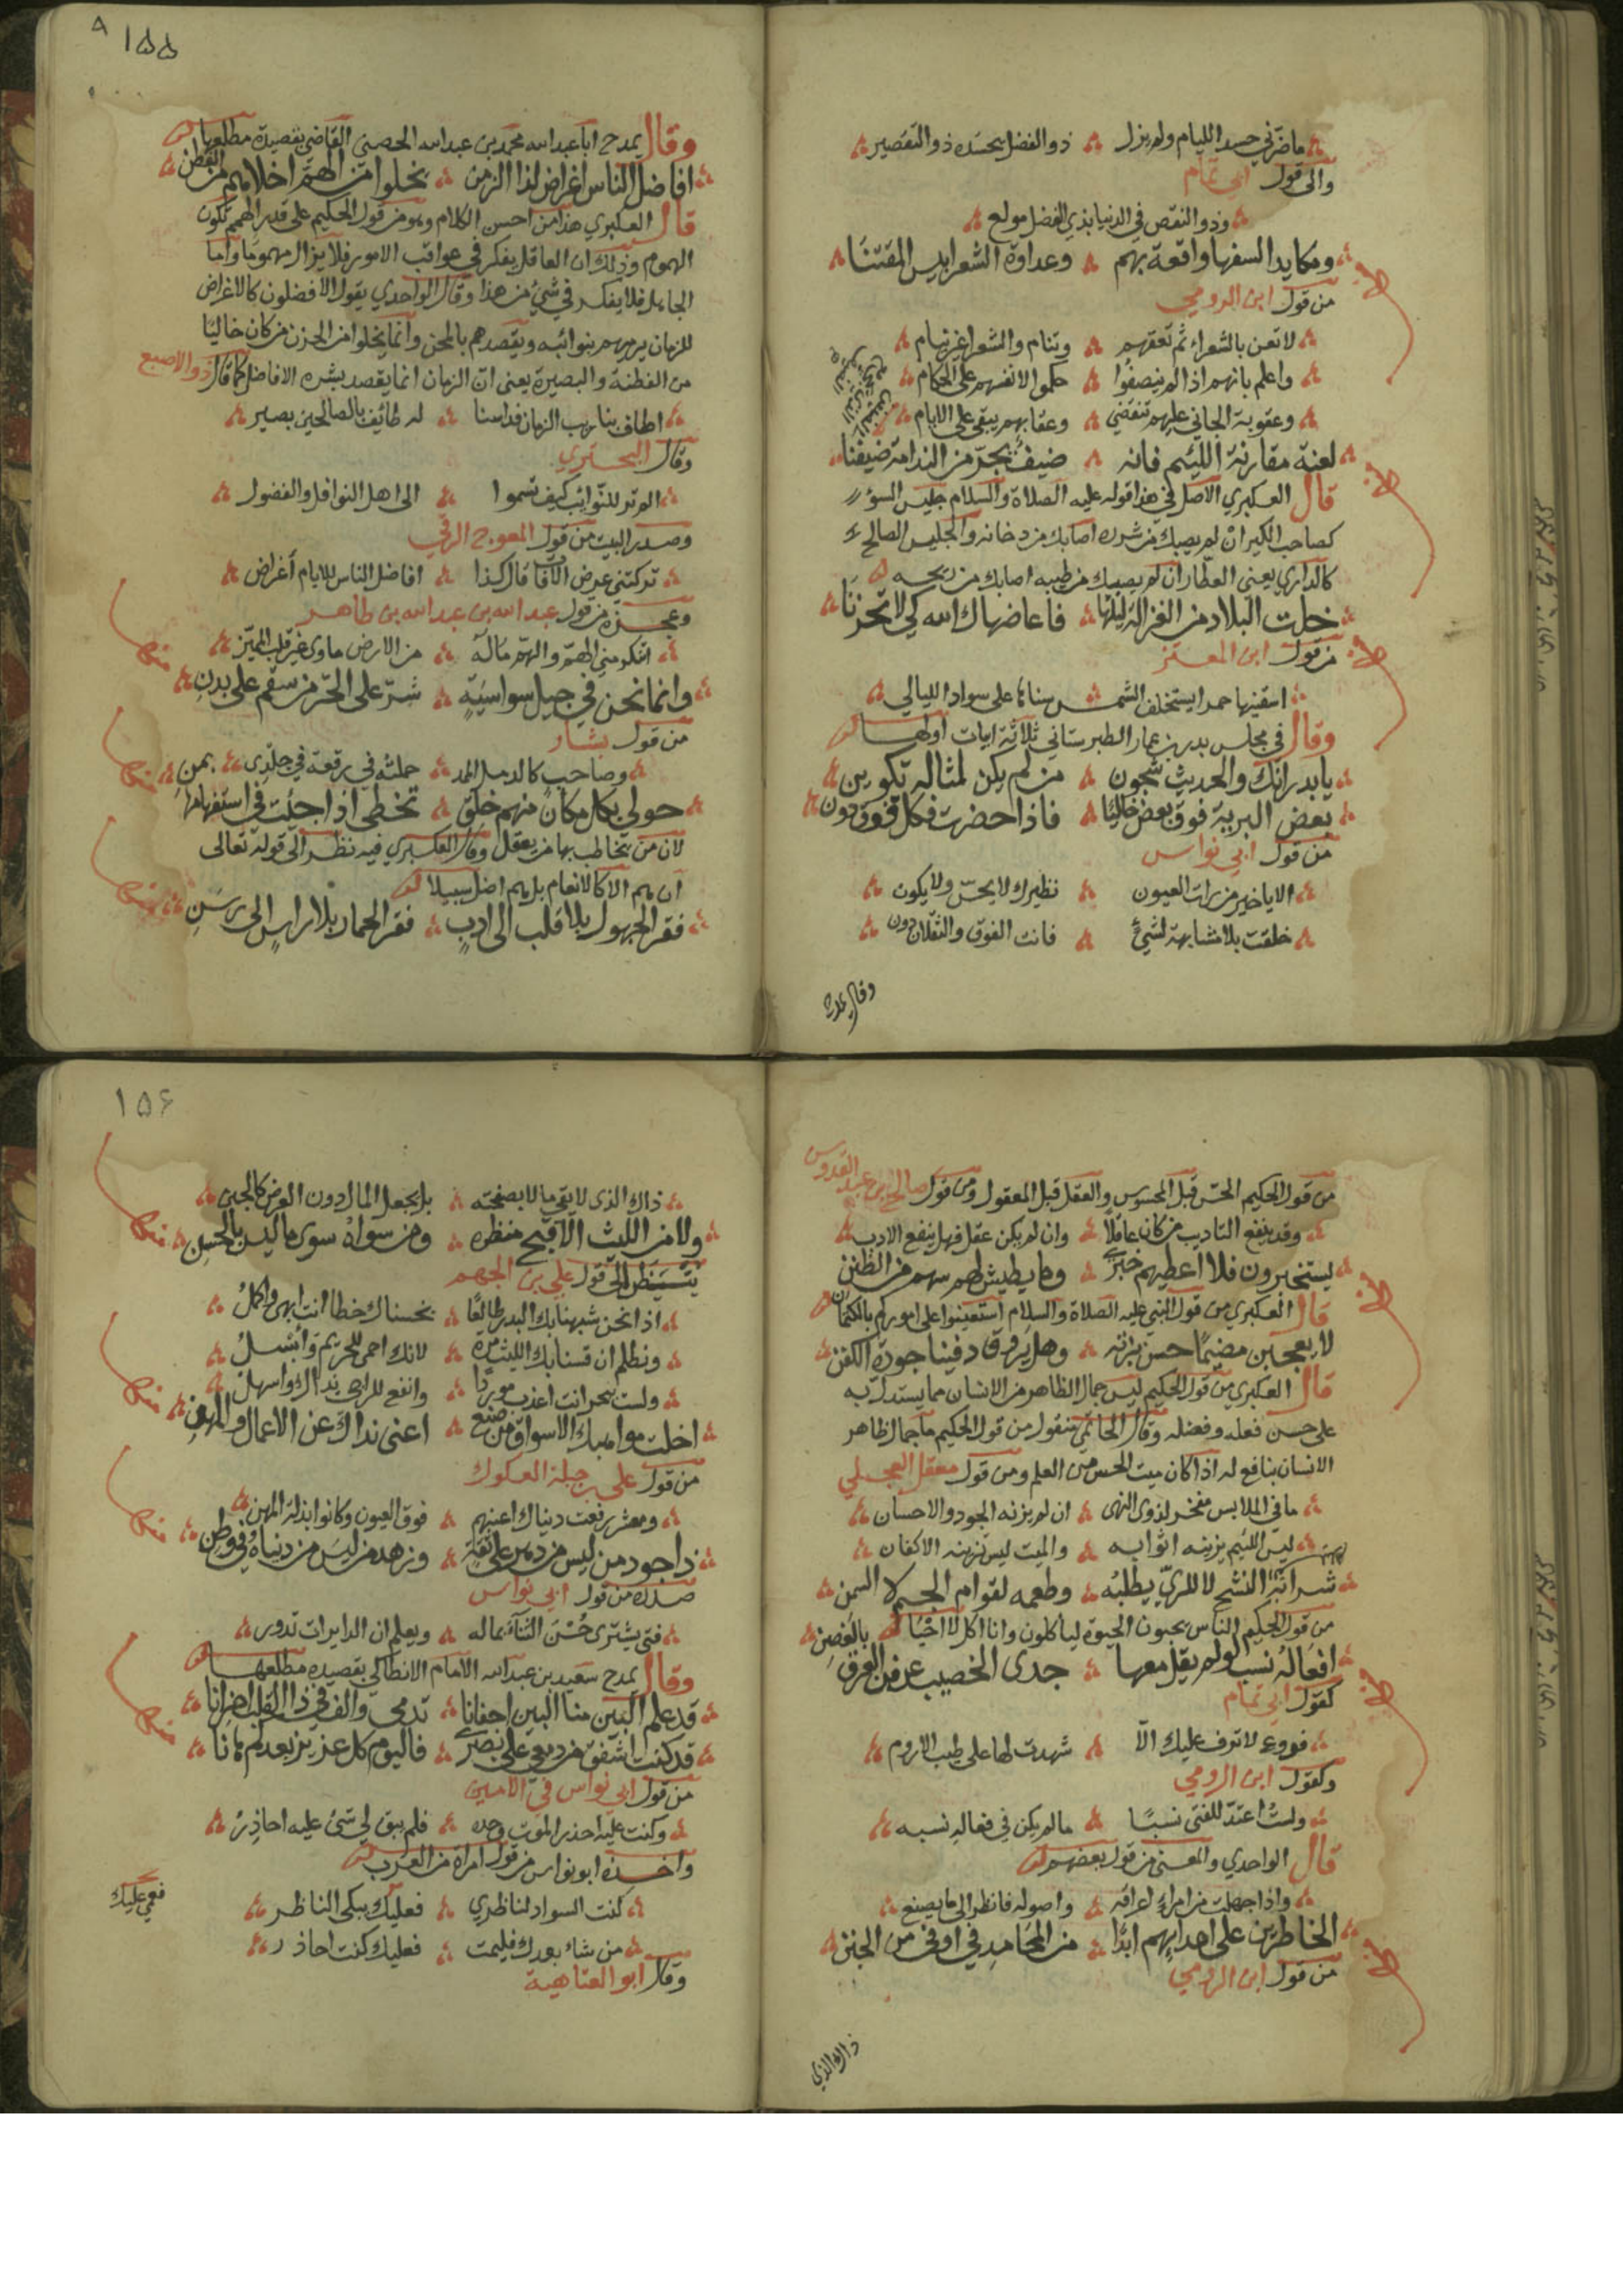 ما ضرني حسد الليام ولم يزل ذو الفضل يحسده ذو التقصير
والى قول ابي تمام
وذو النقص في الدنيا بذي الفضل مولع
ومكايد السفها واقعة بهم وعداوة الشعرا بيس المقتنا
من قول ابن الرومي
لا تعبن بالشعراء ثم تعقهم وتنام والشعرا غير نيام
واعلم بانهم اذا لم ينصفوا حكموا لانفسهم على الحكام
وعقوبة الجاني عليهم تنقضي وعقابهم يبقى على الايام
لعنة مقارنة اللئيم فانه ضيف يجر من الندامة ضيفنا
قال العكبري الاصل في هذا قوله عليه الصلاة والسلام جليس السؤ
كصاحب الكير ان لم يصبك من شرره اصابك من دخانه والجليس الصالح
كالداري يعني العطار ان لم يصبك من طيبه اصابك من ريحه
خلت البلاد من الغزالة ليلها فاعاضهاك الله كي لا تحزنا
من قول ابن المعتز
اسقنيها حمرا يستخلف الشمس سناها على سواد الليالي
وقال في مجلس بدر بن عمار الطبرستاني ثلاثة ابيات اولها
يا بدر انك والحديث شجون من لم يكن لمثاله تكوين
بعض البرية فوق بعض خاليا فاذا حضرت فكل فوق دون
من قول ابي نواس
الا يا خير من رات العيون نظيرك لا يحس ولا يكون
خلقت بلا مشابهة لشئ فانت الفوق والثقلان دون
وقال يمدح
١٥٥
وقال يمدح ابا عبد الله محمد بن عبد الله الحصني القاضي بقصيدة مطلعها
افاضل الناس اغراض لذا الزمن يخلوا من الهم اخلاهم من الفطن
قال العكبري هذا من احسن الكلام وهو من قول الحكيم على قدر الهمم تكون
الهموم وذلك ان العاقل يفكر في عواقب الامور فلا يزال مهموما واما
الجاهل فلا يفكر في شئ من هذا وقال الواحدي يقول الافضلون كالاغراض
للزمان يرميهم بنوائبه ويقصدهم بالمحن وانما يخلوا من الحزن من كان خاليا
من الفطنة والبصيرة يعني ان الزمان انما يقصد بشره الافاضل كما قال ذو الاصبع
اطاف بنا ريب الزمان فداسنا له طائف بالصالحين بصير
وقال البحتري
الم تر للنوائب كيف تسموا الى اهل النوافل والفضول
وصدر البيت من قول المعوج الرقي
تركتني غرض الافات قال كذا افاضل الناس للايام أغراض
وعجزه من قول عبد الله بن عبد الله بن طاهر
اتشكو مني الهم والهم ماله من الارض ماوى غير قلب المميز
وانما نحن في جيل سواسية شر على الحر من سقم على بدن
من قول بشار
وصاحب كالدمل الممد حملته في رقعة في جلدي
حولي بكل مكان منهم خلق تخطي اذا جئت في استفهامها بمن
لان من يخاطب بها من يعقل وقال العكبري فيه نظر الى قوله تعالى
ان هم الا كالانعام بل هم اضل سبيلا
فقر الجهول بلا قلب الى ادب فقر الحمار بلا راس الى رسن
من قول الحكيم الحس قبل المحسوس والعقل قبل المعقول ومن قول صالح بن عبد القدوس
وقد ينفع التاديب من كان عاقلا وان لم يكن عقل فهل ينفع الادب
يستخبرون فلا اعطيهم خبري وما يطيش لهم سهم من الظنن
قال العكبري من قول النبي عليه الصلاة والسلام استعينوا على اموركم بالكتمان
لا يعجبن مضيما حسن بزته وهل يروق دفينا جودة الكفن
قال العكبري من قول الحكيم ليس جمال الظاهر من الانسان مما يستدل به
على حسن فعله وفضله وقال الحاتمي منقول من قول الحكيم ما جمال ظاهر
الانسان بنافع له اذا كان ميت الحس من العلم ومن قول معقل العجلي
ما في الملابس مفخر لذوى النهى ان لم يزنه الجود والاحسان
ليس اللئيم يزينه اثوابه والميت ليس تزينه الاكفان
شرابه النشح لا للري يطلبه وطعمه لقوام الجسم لا السمن
من قول الحكيم الناس يحبون الحيوة لياكلون وانا اكل لاحيا
افعاله نسب لو لم يقل معها جدى الخصيب عرفنا العرق بالغصن
كقول ابي تمام
فروع لا ترف عليك الا شهدت لها على طيب الاروم
وكقول ابن الرومي
ولست اعتد للفتى نسبا ما لم يكن في فعاله نسبه
قال الواحدي والمعنى من قول بعضهم
واذا جهلت من امرئ اعراقه واصوله فانظر الى ما يصنع
الخاطرين على اعدايهم ابدا من المحامد في اوفى من الجنن
من قول ابن الرومي
ذاك الذي
١٥٦
ذاك الذى لا يقي مالا بصفحته بل يجعل المال دون العرض كالجنن
ولا من الليث الا قبح منظره ومن سواه سوى ما ليس بالحسن
ينظر الى قول علي بن الجهم
اذا نحن شبهناك بالبدر طالعا بخسناك حظا انت ابهى واكمل
ونظلم ان قسناك بالليث مرة لانك احمى للحريم وابسل
ولست ببحر انت اعذب موردا وانفع للراجي نداك واسهل
اخلت مواهبك الاسواق من صنع اغنى نداك عن الاعمال والمهن
من قول علي بن جبلة العكوك
ومعشر رفعت دنياك اعينهم فوق العيون وكانوا بذلة المهن
ذا جود من ليس من دهر على ثقة وزهد من ليس من دنياه في وطن
صدره من قول ابي نواس
فتى يشترى حسن الثناء بماله ويعلم ان الدايرات تدور
وقال يمدح سعيد بن عبد الله الامام الانطاكي بقصيدة مطلعها
قد علم البين منا البين اجفانا تدمى والف في ذا القلب احزانا
قد كنت اشفق من دمعي على بصري فاليوم كل عزيز بعدكم هانا
من قول ابي نواس في الامين
وكنت عليه احذر الموت وحده فلم يبق لي شئ عليه احاذر
واخذه ابو نواس من قول امراة من العرب
كنت السواد لناظري فعليك يبكى الناظر
فعمي عليك
من شاء بعدك فليمت فعليك كنت احاذر
وقال ابو العتاهية